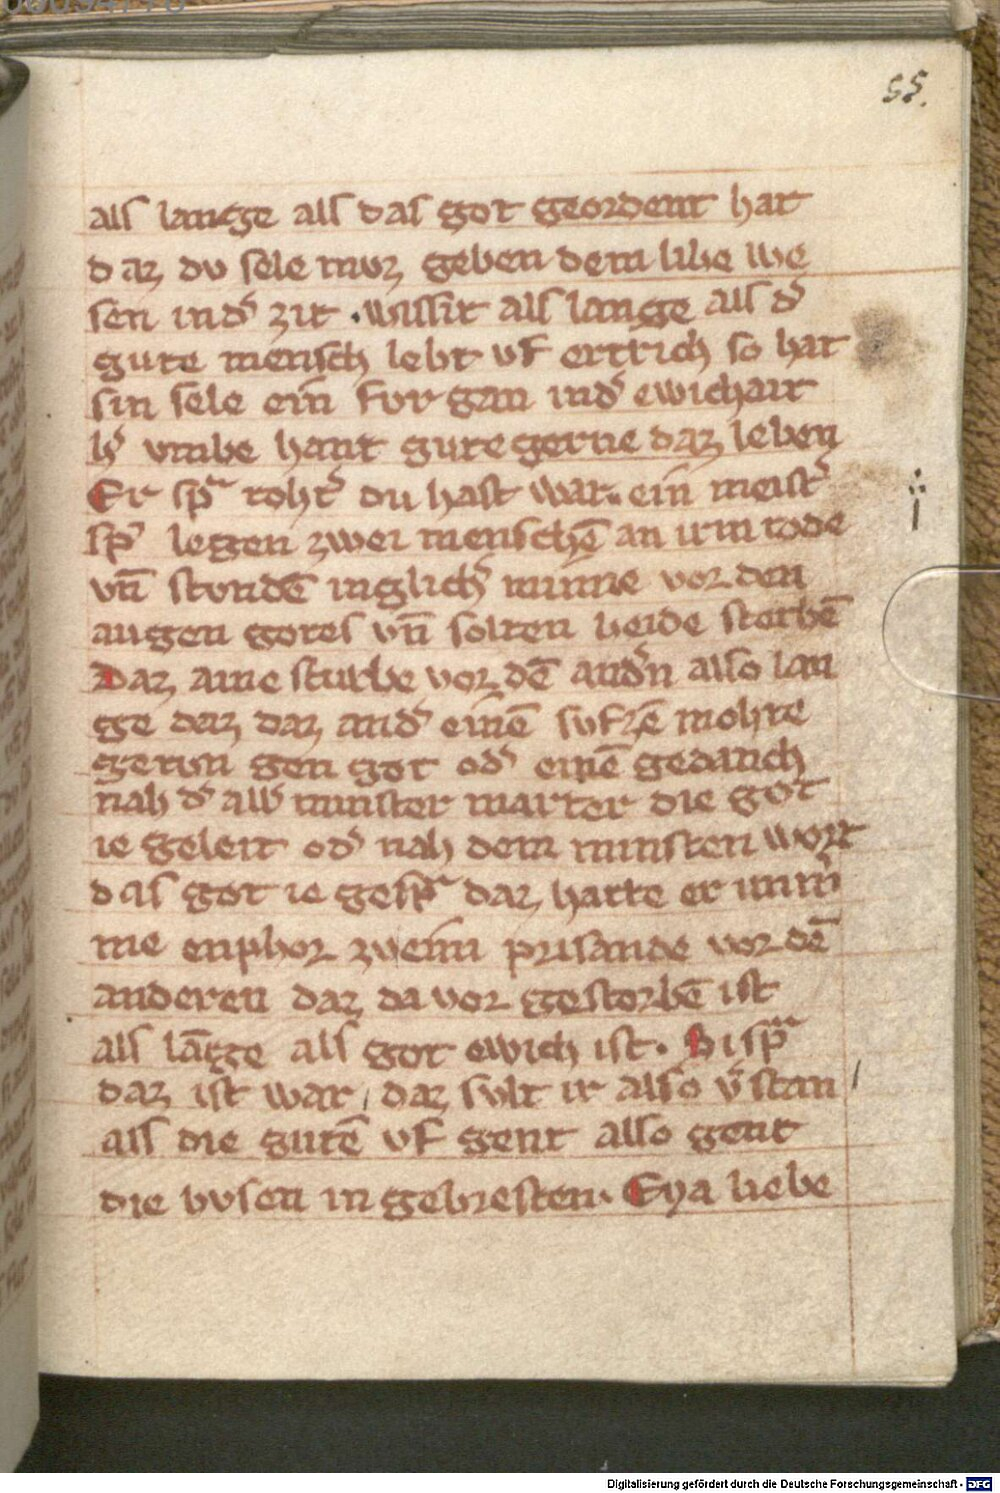 55.
als lange als das got geordent hat
daz dv sele muoz geben dem libe we
sen ind᾽ zit . wissit als lange als d᾽
gute mensch lebt vf ertrich so hat
sin sele ein fvrgan ind᾽ ewichait
h᾽ vmbe hant gute gerne daz leben
Er spͣ toht᾽ du hast war. ein meist᾽
sp᾽ legen zwei menschē an irm tode
vn̄ stvndē inglich᾽ minne vor den
augen gotes vn̄ solten beide sterbē
Daz aine sturbe vor dē and᾽n also lan
ge daz daz and᾽ einē svfzē mohte
getvn gen got od᾽ einē gedanch
nah d᾽ all᾽ minster marter die got
ie geleit od᾽ nah dem minsten wort
das got ie gespͣ daz hatte er imm᾽
me enphor zweim prisande vor dē
anderen daz da vor gestorbē ist
als lāge als got ewich ist. Si spͣ
daz ist war / daz svlt ir also v᾽stan /
als die gutē vf gent also gent
die bvsen in gebresten. Eya liebe
Digitalisierung gefördert durch die Deutsche Forschungsgemeinschaft - DFG